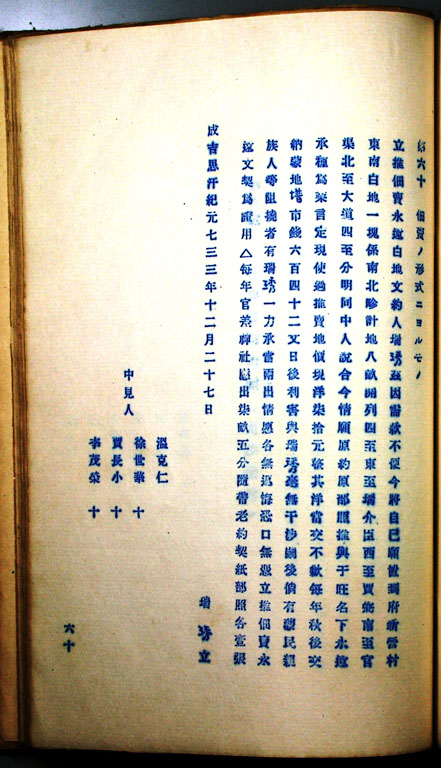 第六十 佃賣ノ形式ニヨルモノ
立推佃賣永遠白地文約人瑞 因需款不便今將自己願置 府 營村
東南白地一塊係南北畛計地八畝開列四至東至瑞介臣西至賈 南至官
渠北至大道四至分明同中人說合今情願原約原部照推與于旺名下永遠
承種為業言定現使過推賣地價現洋柒拾元整其洋當交不歉每年秋後交
納蒙地譜市錢六百四十二文日後利害與瑞 毫無干涉嗣後倘有蒙民親
族人等阻撓者有瑞 一力承當兩出情愿各無返悔恐口無憑立推佃賣永
遠文契為證用△每年官 神社應出柒畝五分隨帶老約契紙部照各壹張
成吉思汗紀元七三三年十二月二十七日
瑞 立
中見人
溫克仁
徐世華 十
賈長小 十
李茂榮 十
六十